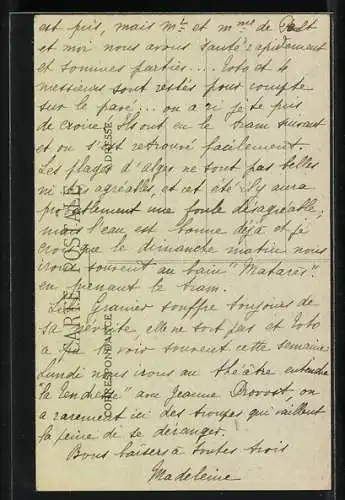 est pris, mais Mr. et Mme de Pelt
et moi nous avons sauté rapidement
et sommes parties.... Toto et 4
messieurs sont restés pour compte
sur le pavé... on a ri je te prie
de croire. Ils ont eu le tram suivant
et on s'est retrouvé facilement.
Les plages d'Alger ne sont pas belles
ni très agréables, et cet été il y aura
probablement une foule désagréable,
mais l'eau est bonne déjà et je
crois que le dimanche matin nous
irons souvent au bain "Matarès"
en prenant le tram.
Granier souffre toujours de
sa névrite, elle ne sort pas et Toto
a pu la voir souvent cette semaine.
Lundi nous irons au théâtre entendre
"la Tendresse" avec Jeanne Provost, on
a rarement ici des troupes qui vaillent
la peine de se déranger.
Bons baisers à toutes trois
Madeleine
CARTE POSTALE
CORRESPONDANCE
ADRESSE